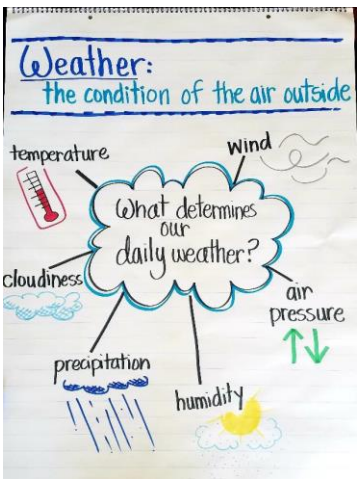 Weather:
the condition of the air outside
temperature
wind
What determines
our
daily weather?
cloudiness
air
pressure
precipitation
humidity